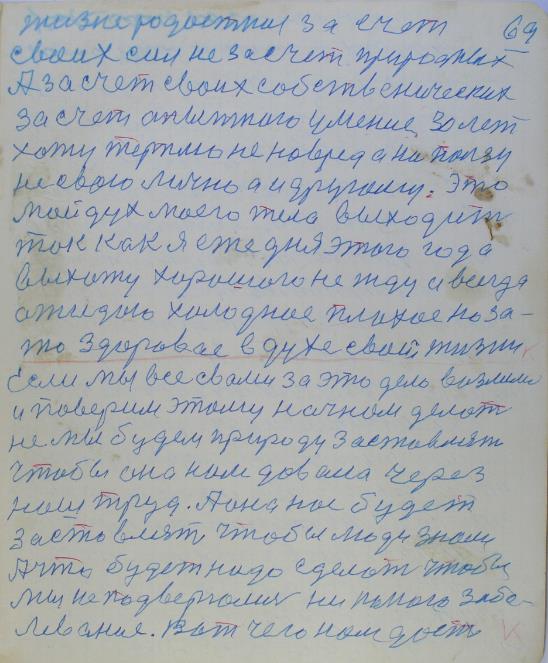 жизнерадостная за счет 69
своих сил не за счет природных
А за счет своих собственических
за счет опытного умение, 30 лет
хожу терплю не на вред а на ползу
не свою лично а и другому. Это
мой дух моего тела выходить
так как я еже дня этого года
выхожу хорошого не жду и всегда
ожидою холодное плохое но за-
то здоровае в духе своей жизни
Если мы все свами за это дело возмемся
и поверим этому начном делат
не мы будем природу заставлят
чтобы она нам довала через
наш труд. А она нас будет
заставлят чтобы люди знали
А что будет надо сделат чтобы
мы не подвергались ни какого забо-
левание. Вот чего нам дость